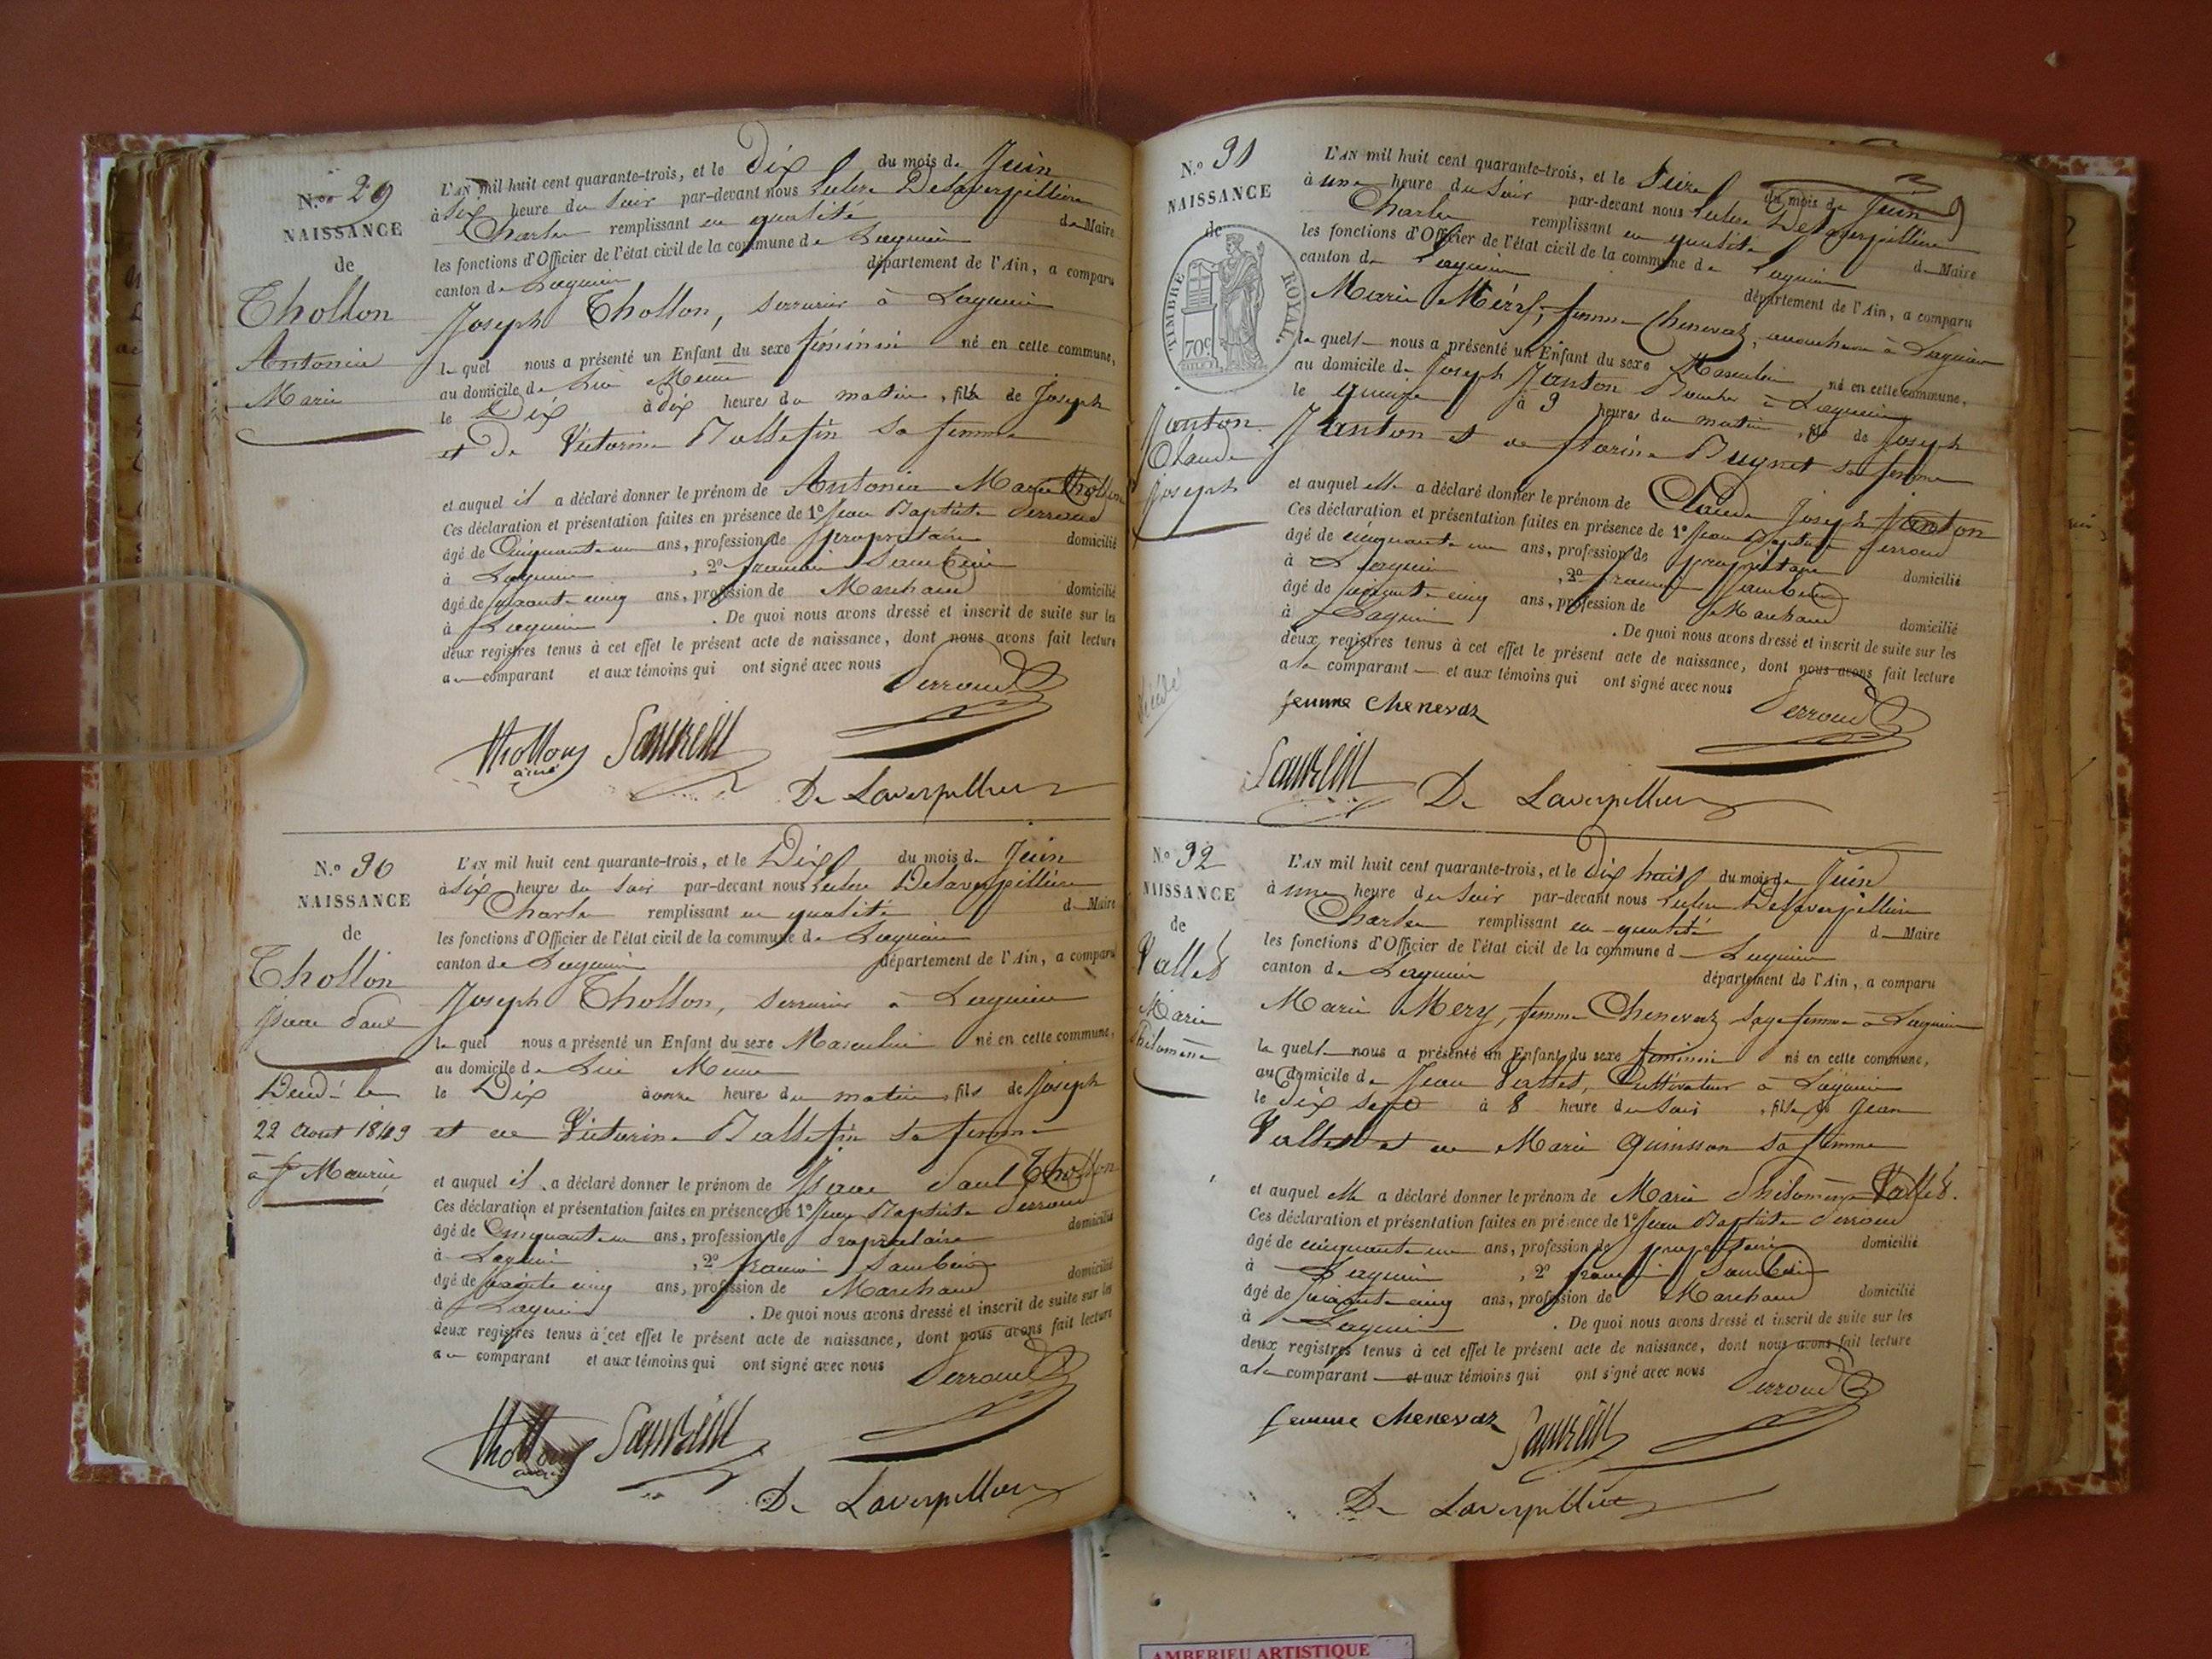 N.º 29
NAISSANCE
de
Thollon
Antonia
Marie
L'AN mil huit cent quarante-trois, et le Dix du mois de Juin
à Six heure du Soir par-devant nous Delaverpillière
Charles remplissant en qualité de Maire
les fonctions d'Officier de l'état civil de la commune de Lagnieu
canton de Lagnieu département de l'Ain, a comparu
Joseph Thollon, Serrurier à Lagnieu
le quel nous a présenté un Enfant du sexe féminin né en cette commune,
au domicile de Lui Même
le Dix à dix heures du matin, fille de Joseph
et de Victorine Ballefin sa femme
et auquel il a déclaré donner le prénom de Antonia Marie Thollon
Ces déclaration et présentation faites en présence de 1º Jean Baptiste Perroud
âgé de Cinquante un ans, profession de propriétaire domicilié
à Lagnieu, 2º françois Saubein
âgé de cinq ans, profession de Marchand domicilié
à Lagnieu. De quoi nous avons dressé et inscrit de suite sur les
deux registres tenus à cet effet le présent acte de naissance, dont nous avons fait lecture
au comparant et aux témoins qui ont signé avec nous
Perroud
Thollon
ainé
De Laverpillière
N.º 30
NAISSANCE
de
Thollon
Pierre Paul
Décédé le
22 Aout 1849
à St Maurice
L'AN mil huit cent quarante-trois, et le Dix du mois de Juin
à Six heures du Soir par-devant nous Delaverpillière
Charles remplissant en qualité de Maire
les fonctions d'Officier de l'état civil de la commune de Lagnieu
canton de Lagnieu département de l'Ain, a comparu
Joseph Thollon, Serrurier à Lagnieu
le quel nous a présenté un Enfant du sexe Masculin né en cette commune,
au domicile de Lui Même
le Dix à onze heures du matin, fils de Joseph
et de Victorine Ballefin sa femme
et auquel il a déclaré donner le prénom de Pierre Paul Thollon
Ces déclaration et présentation faites en présence de 1º Jean Baptiste Perroud
âgé de Cinquante un ans, profession de Propriétaire domicilié
à Lagnieu, 2º françois Saubein
âgé de cinq ans, profession de Marchand domicilié
à Lagnieu. De quoi nous avons dressé et inscrit de suite sur les
deux registres tenus à cet effet le présent acte de naissance, dont nous avons fait lecture
au comparant et aux témoins qui ont signé avec nous
Perroud
Thollon
ainé
De Laverpillière
N.º 31
NAISSANCE
de
TIMBRE ROYAL
70c
Janton
Claude
Joseph
décédé
L'AN mil huit cent quarante-trois, et le Seize du mois de Juin
à une heure du Soir par-devant nous Delaverpillière
Charles remplissant en qualité de Maire
les fonctions d'Officier de l'état civil de la commune de Lagnieu
canton de Lagnieu département de l'Ain, a comparu
Marie Méry, femme Chenevaz, accoucheuse à Lagnieu
la quelle nous a présenté un Enfant du sexe Masculin né en cette commune,
au domicile de Joseph Janton Boucher à Lagnieu
le quinze à 9 heures du matin, fils de Joseph
Janton et de florine Bugnet sa femme
et auquel elle a déclaré donner le prénom de Claude Joseph Janton
Ces déclaration et présentation faites en présence de 1º Jean Baptiste Perroud
âgé de cinquante un ans, profession de propriétaire domicilié
à Lagnieu, 2º françois Saubein
âgé de cinq ans, profession de Marchand domicilié
à Lagnieu. De quoi nous avons dressé et inscrit de suite sur les
deux registres tenus à cet effet le présent acte de naissance, dont nous avons fait lecture
a la comparant et aux témoins qui ont signé avec nous
femme Chenevaz
Perroud
De Laverpillière
N.º 32
NAISSANCE
de
Vallet
Marie
Philomène
L'AN mil huit cent quarante-trois, et le Dix huit du mois de Juin
à une heure du Soir par-devant nous Delaverpillière
Charles remplissant en qualité de Maire
les fonctions d'Officier de l'état civil de la commune de Lagnieu
canton de Lagnieu département de l'Ain, a comparu
Marie Mery, femme Chenevaz Sage femme à Lagnieu
la quelle nous a présenté un Enfant du sexe féminin né en cette commune,
au domicile de Jean Vallet, Cultivateur à Lagnieu
le dix sept à 8 heure du Soir, fille de Jean
Vallet et de Marie Quinsson sa femme
et auquel elle a déclaré donner le prénom de Marie Philomène Vallet.
Ces déclaration et présentation faites en présence de 1º Jean Baptiste Perroud
âgé de cinquante un ans, profession de propriétaire domicilié
à Lagnieu, 2º françois Saubein
âgé de cinq ans, profession de Marchand domicilié
à Lagnieu. De quoi nous avons dressé et inscrit de suite sur les
deux registres tenus à cet effet le présent acte de naissance, dont nous avons fait lecture
a la comparant et aux témoins qui ont signé avec nous
Perroud
femme Chenevaz
De Laverpillière
AMBERIEU ARTISTIQUE